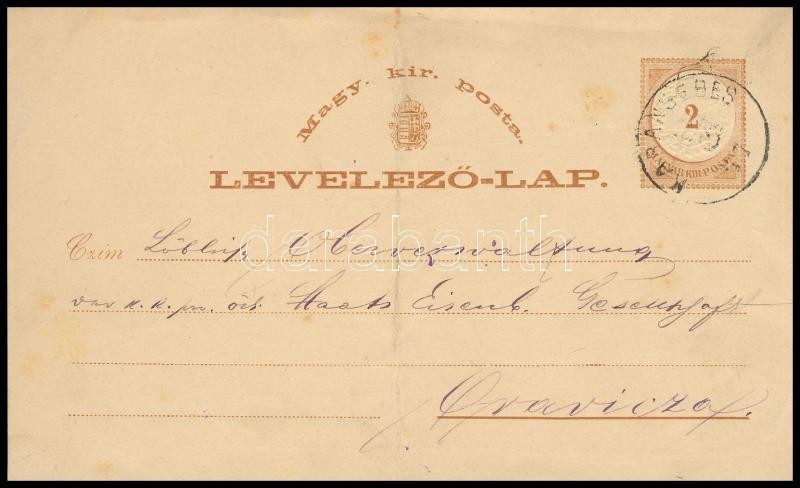 Magy. kir. posta.
LEVELEZŐ-LAP.
2
MAGYAR KIR. POSTA
KARANSEBES
Czim Löbliche Oberverwaltung
der k. k. pr. öst. Staats Eisenb. Gesellschaft
Oravicza.
darabanth